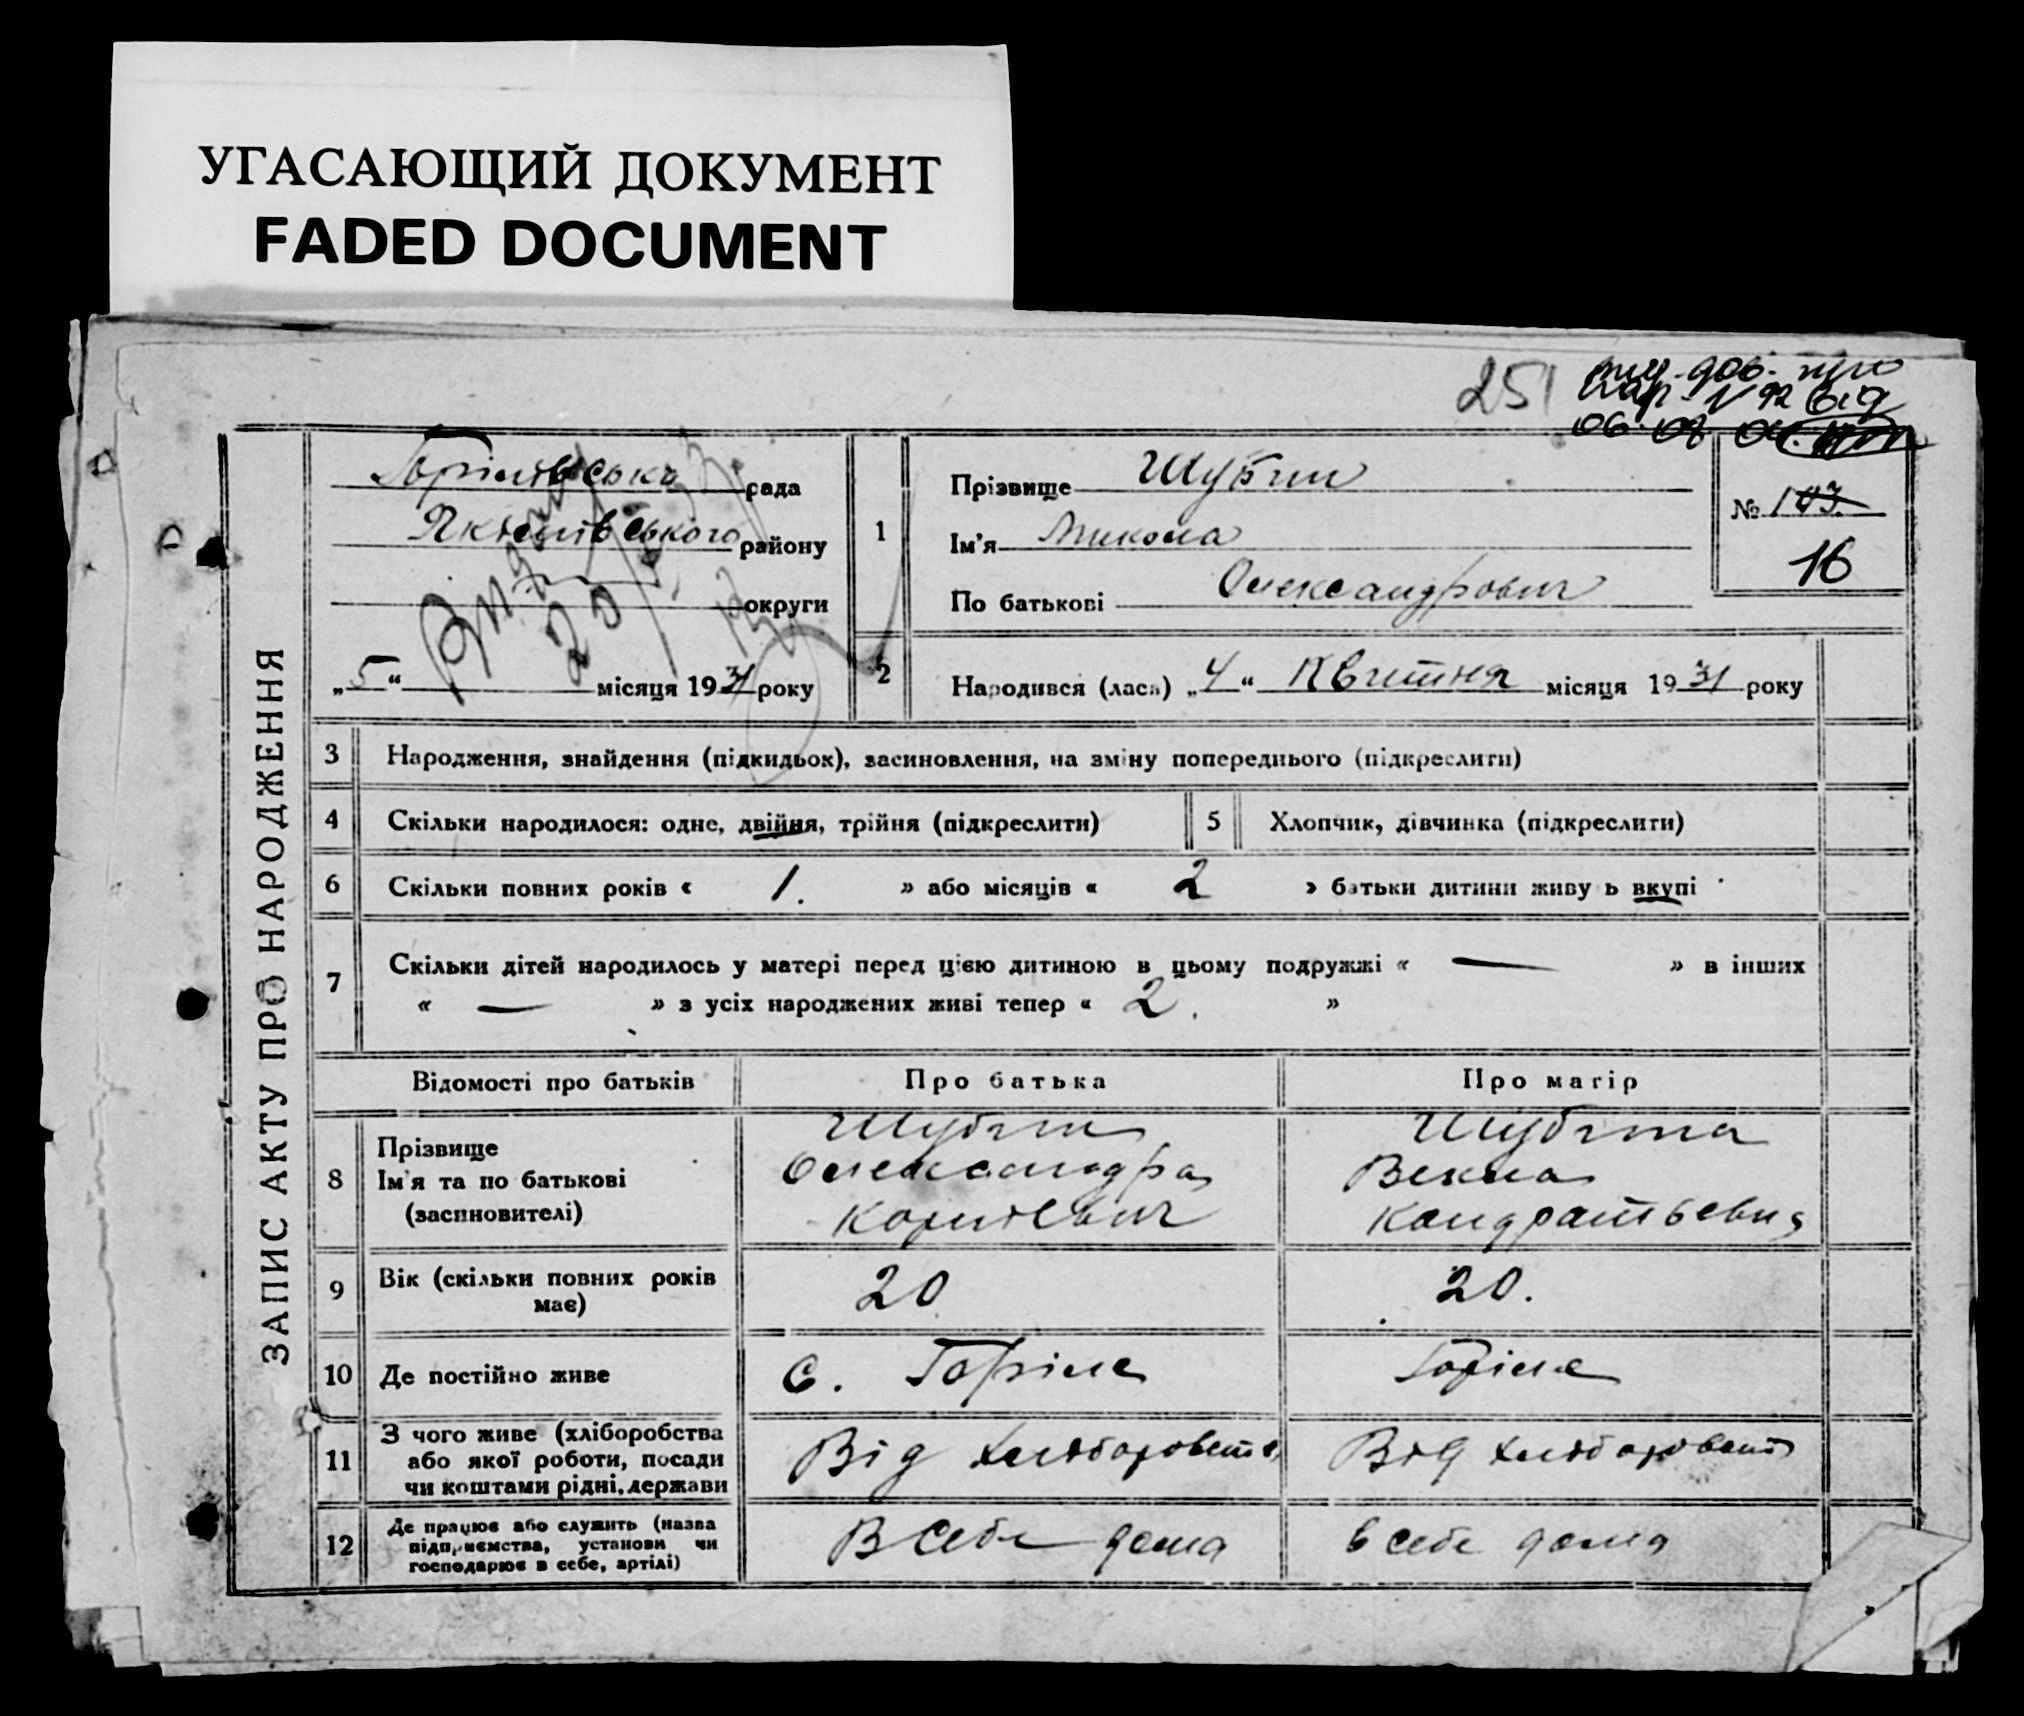 УГАСАЮЩИЙ ДОКУМЕНТ
FADED DOCUMENT
251
про
від
06.
ЗАПИС АКТУ ПРО НАРОДЖЕННЯ
рада
району
округи
„5“ місяця 1931 року
1
Прізвище Шубин
Ім'я Микола
По батькові Олександрович
№ 103.
16
2
Народився (лась) „4“ Квитня місяця 1931 року
3 Народження, знайдення (підкидьок), засиновлення, на зміну попереднього (підкреслити)
4 Скільки народилося: одне, двійня, трійня (підкреслити)
5 Хлопчик, дівчинка (підкреслити)
6 Скільки повних років « 1. » або місяців « 2 » батьки дитини живу ь вкупі
7 Скільки дітей народилось у матері перед цією дитиною в цьому подружжі « — » в інших
« — » з усіх народжених живі тепер « 2. »
Відомості про батьків Про батька Про матір
8 Прізвище
Ім'я та по батькові
(засиновителі)
Шубин
Олександра
Шубина
Векла
Кандратьевна
9 Вік (скільки повних років
має)
20
20.
10 Де постійно живе
с. Горіле
Горіле
11 З чого живе (хліборобства
або якої роботи, посади
чи коштами рідні, держави
Від
Від
12 Де працює або служить (назва
підприємства, установи чи
господарює в себе, артілі)
В себе дома
в себе дома